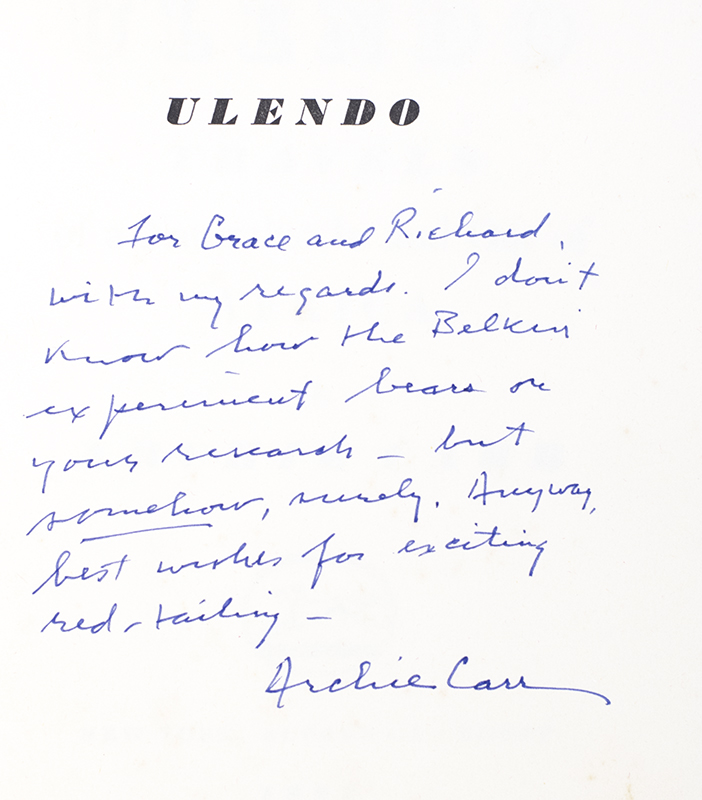 ULENDO
For Grace and Richard,
with my regards. I don't
know how the Belkin
experiment bears on
your research – but
somehow, surely. Anyway,
best wishes for exciting
red-tailing –
Archie Carr